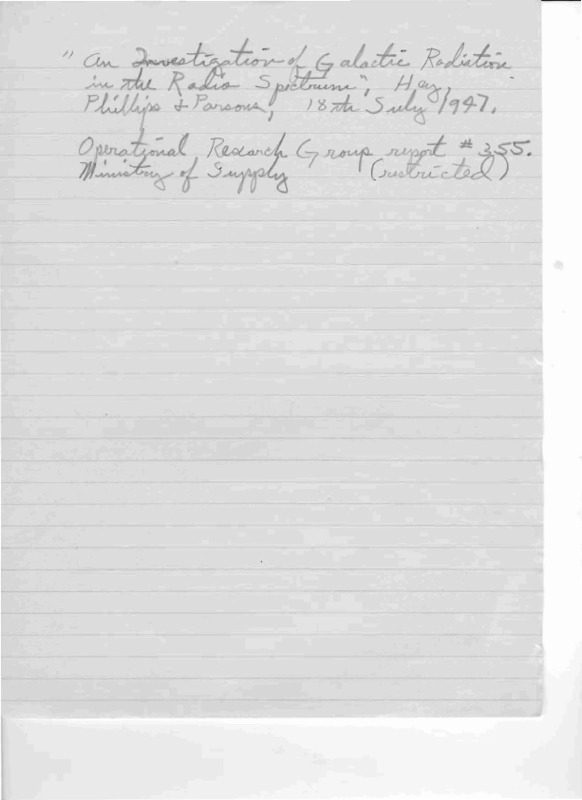 "An Investigation of Galactic Radiation
in the Radio Spectrum", Hey,
Phillips & Parsons, 18th July 1947.
Operational Research Group report # 355.
Ministry of Supply (restricted)